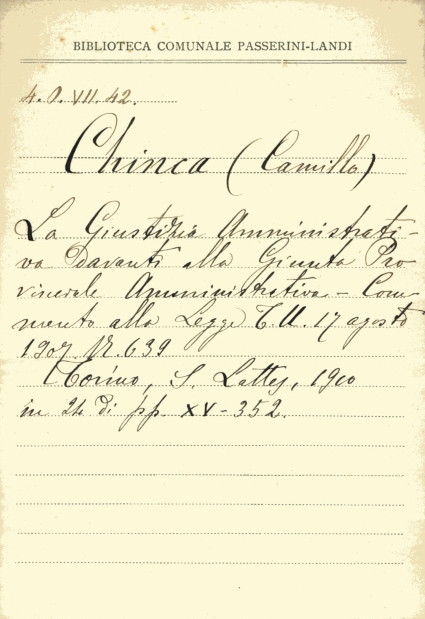 BIBLIOTECA COMUNALE PASSERINI-LANDI
4. O. VII. 42.
Chinca (Camillo)
La Giustizia Amministrati-
va Davanti alla Giunta Pro
vincrale Amministrativa - Com
mento alla Legge T. U. 17 agosto
1907. N. 639
Torino, S. Lattes, 1910
in 24 di pp. XV - 352.